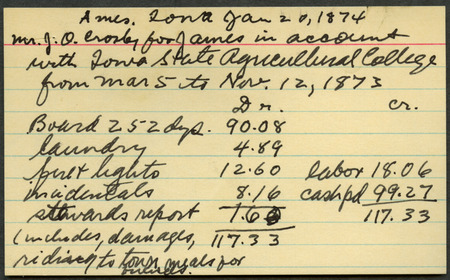 Ames, Iowa Jan 20, 1874
Mr. J. O. Crosby for James in account
with Iowa State Agricultural College
from Mar 5 to Nov. 12, 1873
Dr. Cr.
Board 252 dys. 90.08
laundry 4.89
fuel + lights 12.60 labor 18.06
incidentals 8.16 cash pd 99.27
stewards report 1.60 117.33
(includes, damages, 117.33
riding to town, meals for